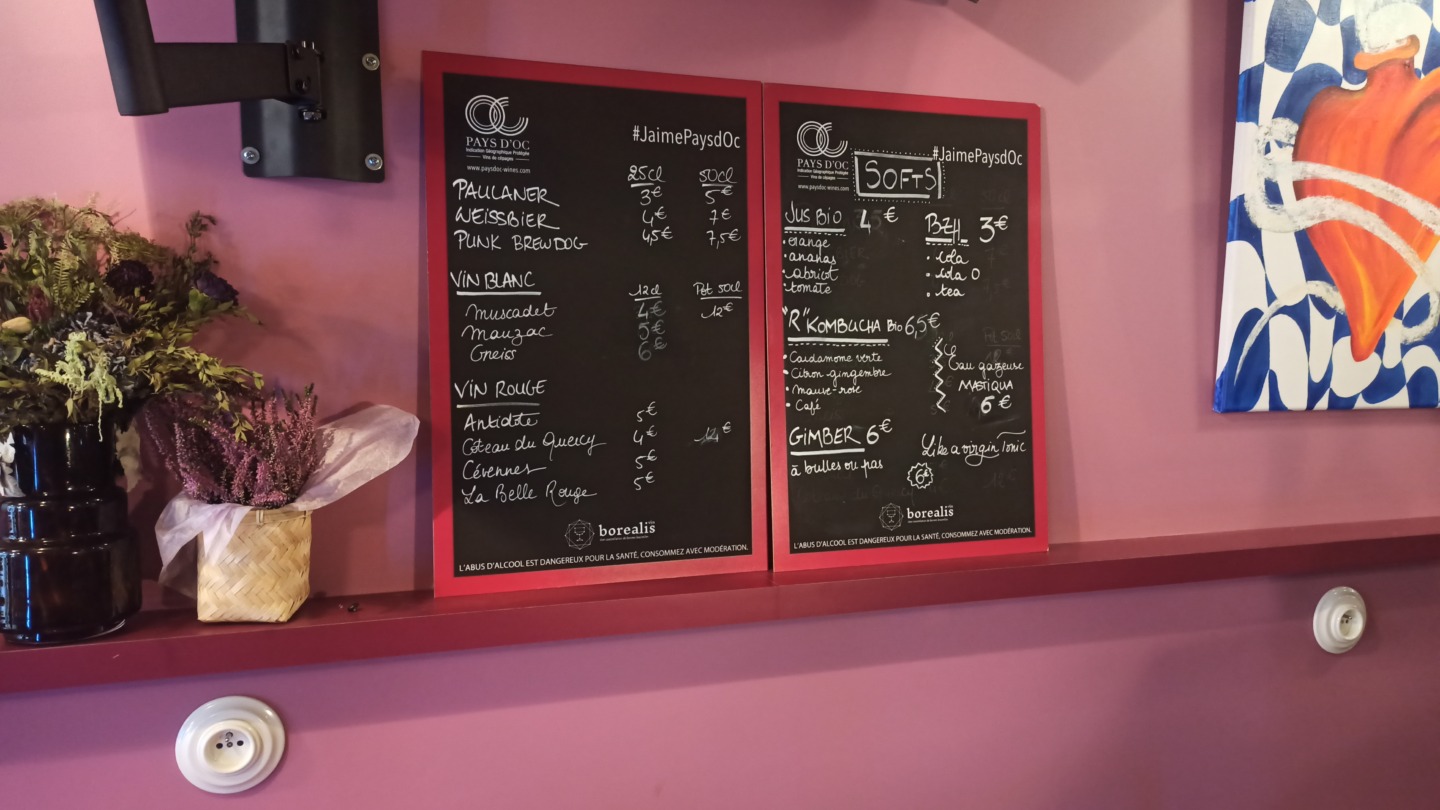 PAYS D'OC
Indication Géographique Protégée
Vins de cépages
www.paysdoc-wines.com
#JaimePaysdOc
25cl 50cl
PAULANER 3€ 5€
WEISSBIER 4€ 7€
PUNK BREWDOG 4,5€ 7,5€
VIN BLANC 12cl Pot 50cl
Muscadet 4€ 12€
Mauzac 5€
Gneiss 6€
VIN ROUGE
Antidote 5€
Côteau du Quercy 4€ €
Cévennes 5€
La Belle Rouge 5€
borealis
L'ABUS D'ALCOOL EST DANGEREUX POUR LA SANTÉ, CONSOMMEZ AVEC MODÉRATION.
PAYS D'OC
Indication Géographique Protégée
Vins de cépages
www.paysdoc-wines.com
#JaimePaysdOc
SOFTS
JUS BIO 4€
• orange
• ananas
• abricot
• tomate
BZH 3€
• cola
• cola 0
• tea
"R" KOMBUCHA BIO 6,5€
• Cardamome verte
• Citron gingembre
• mauve-rose
• Café
Eau gazeuse
MASTIQUA
6€
GIMBER 6€
à bulles ou pas
Like a virgin Tonic
6€
borealis
L'ABUS D'ALCOOL EST DANGEREUX POUR LA SANTÉ, CONSOMMEZ AVEC MODÉRATION.